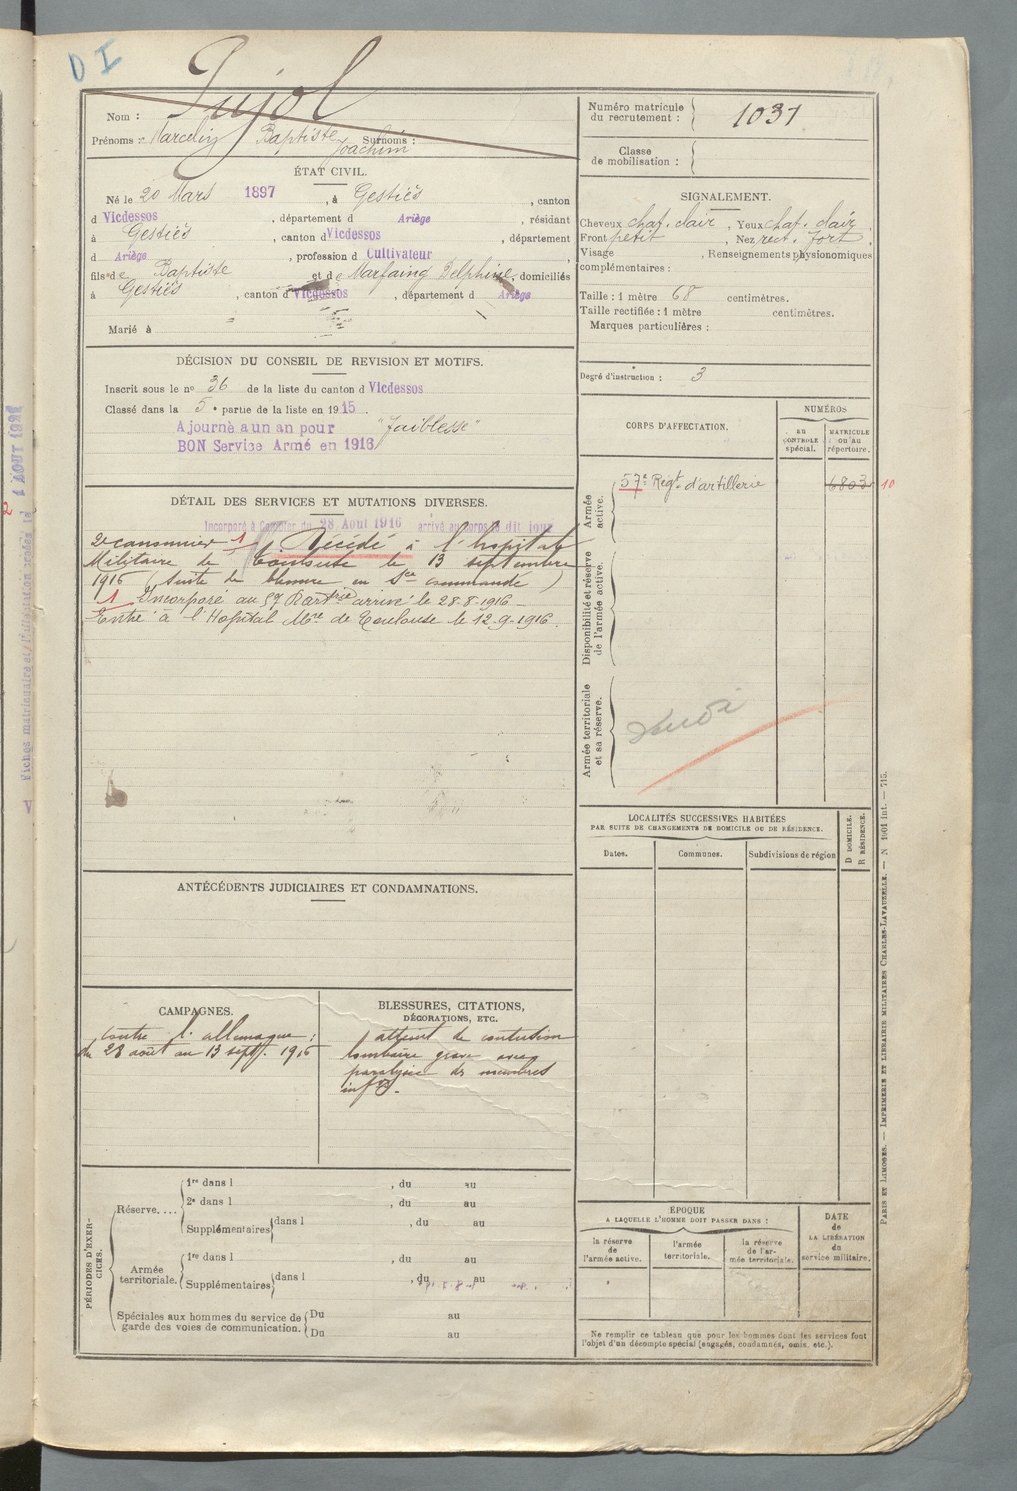 D I
Nom : Pujol
Prénoms : Marcelin Baptiste Joachim Surnoms :
Numéro matricule du recrutement : 1031
Classe de mobilisation :
ÉTAT CIVIL.
Né le 20 Mars 1897, à Gestiès, canton
d Vicdessos, département d Ariège, résidant
à Gestiès, canton d Vicdessos, département
d Ariège, profession d Cultivateur,
fils de Baptiste et de Marfaing Delphine, domiciliés
à Gestiès, canton d Vicdessos, département d Ariège
Marié à
SIGNALEMENT.
Cheveux chat. clair, Yeux chat. clair,
Front petit, Nez rect. fort,
Visage , Renseignements physionomiques
complémentaires :
Taille : 1 mètre 68 centimètres.
Taille rectifiée : 1 mètre centimètres.
Marques particulières :
Degré d'instruction : 3
DÉCISION DU CONSEIL DE REVISION ET MOTIFS.
Inscrit sous le no 36 de la liste du canton d Vicdessos
Classé dans la 5e partie de la liste en 1915.
Ajourné a un an pour "faiblesse"
BON Service Armé en 1916
CORPS D'AFFECTATION.
NUMÉROS
au CONTROLE spécial.
MATRICULE ou au répertoire.
Armée active.
57e Regt. d'artillerie 6803 10
Disponibilité et réserve de l'armée active.
Armée territoriale et sa réserve.
DÉTAIL DES SERVICES ET MUTATIONS DIVERSES.
Incorporé à compter du 28 Août 1916 arrivé au corps le dit jour
2e canonnier 1 Décédé à l'hopital
Militaire de Toulouse le 13 septembre
1916 (suite de blessure en Sce commandé)
1 Incorporé au 57 R artrie arrivé le 28-8-1916 -
Entré à l'Hopital Mre de Toulouse le 12-9-1916.
LOCALITÉS SUCCESSIVES HABITÉES
PAR SUITE DE CHANGEMENTS DE DOMICILE OU DE RÉSIDENCE.
Dates. Communes. Subdivisions de région
D DOMICILE.
R RÉSIDENCE.
ANTÉCÉDENTS JUDICIAIRES ET CONDAMNATIONS.
CAMPAGNES.
Contre l'allemagne :
du 28 août au 13 sept. 1916
BLESSURES, CITATIONS,
DÉCORATIONS, ETC.
atteint de contusion
lombaire grave avec
paralysie des membres
infrs.
PÉRIODES D'EXERCICES.
Réserve....
1re dans l , du au
2e dans l , du au
Supplémentaires dans l , du au
Armée territoriale.
1re dans l , du au
Supplémentaires dans l , du au
Spéciales aux hommes du service de garde des voies de communication.
Du au
Du au
ÉPOQUE
A LAQUELLE L'HOMME DOIT PASSER DANS :
la réserve de l'armée active.
l'armée territoriale.
la réserve de l'armée territoriale.
DATE de LA LIBÉRATION du service militaire.
Ne remplir ce tableau que pour les hommes dont les services font
l'objet d'un décompte spécial (engagés, condamnés, omis, etc.).
PARIS ET LIMOGES. — IMPRIMERIE ET LIBRAIRIE MILITAIRES CHARLES-LAVAUZELLE. — N 1901 int. — 715.